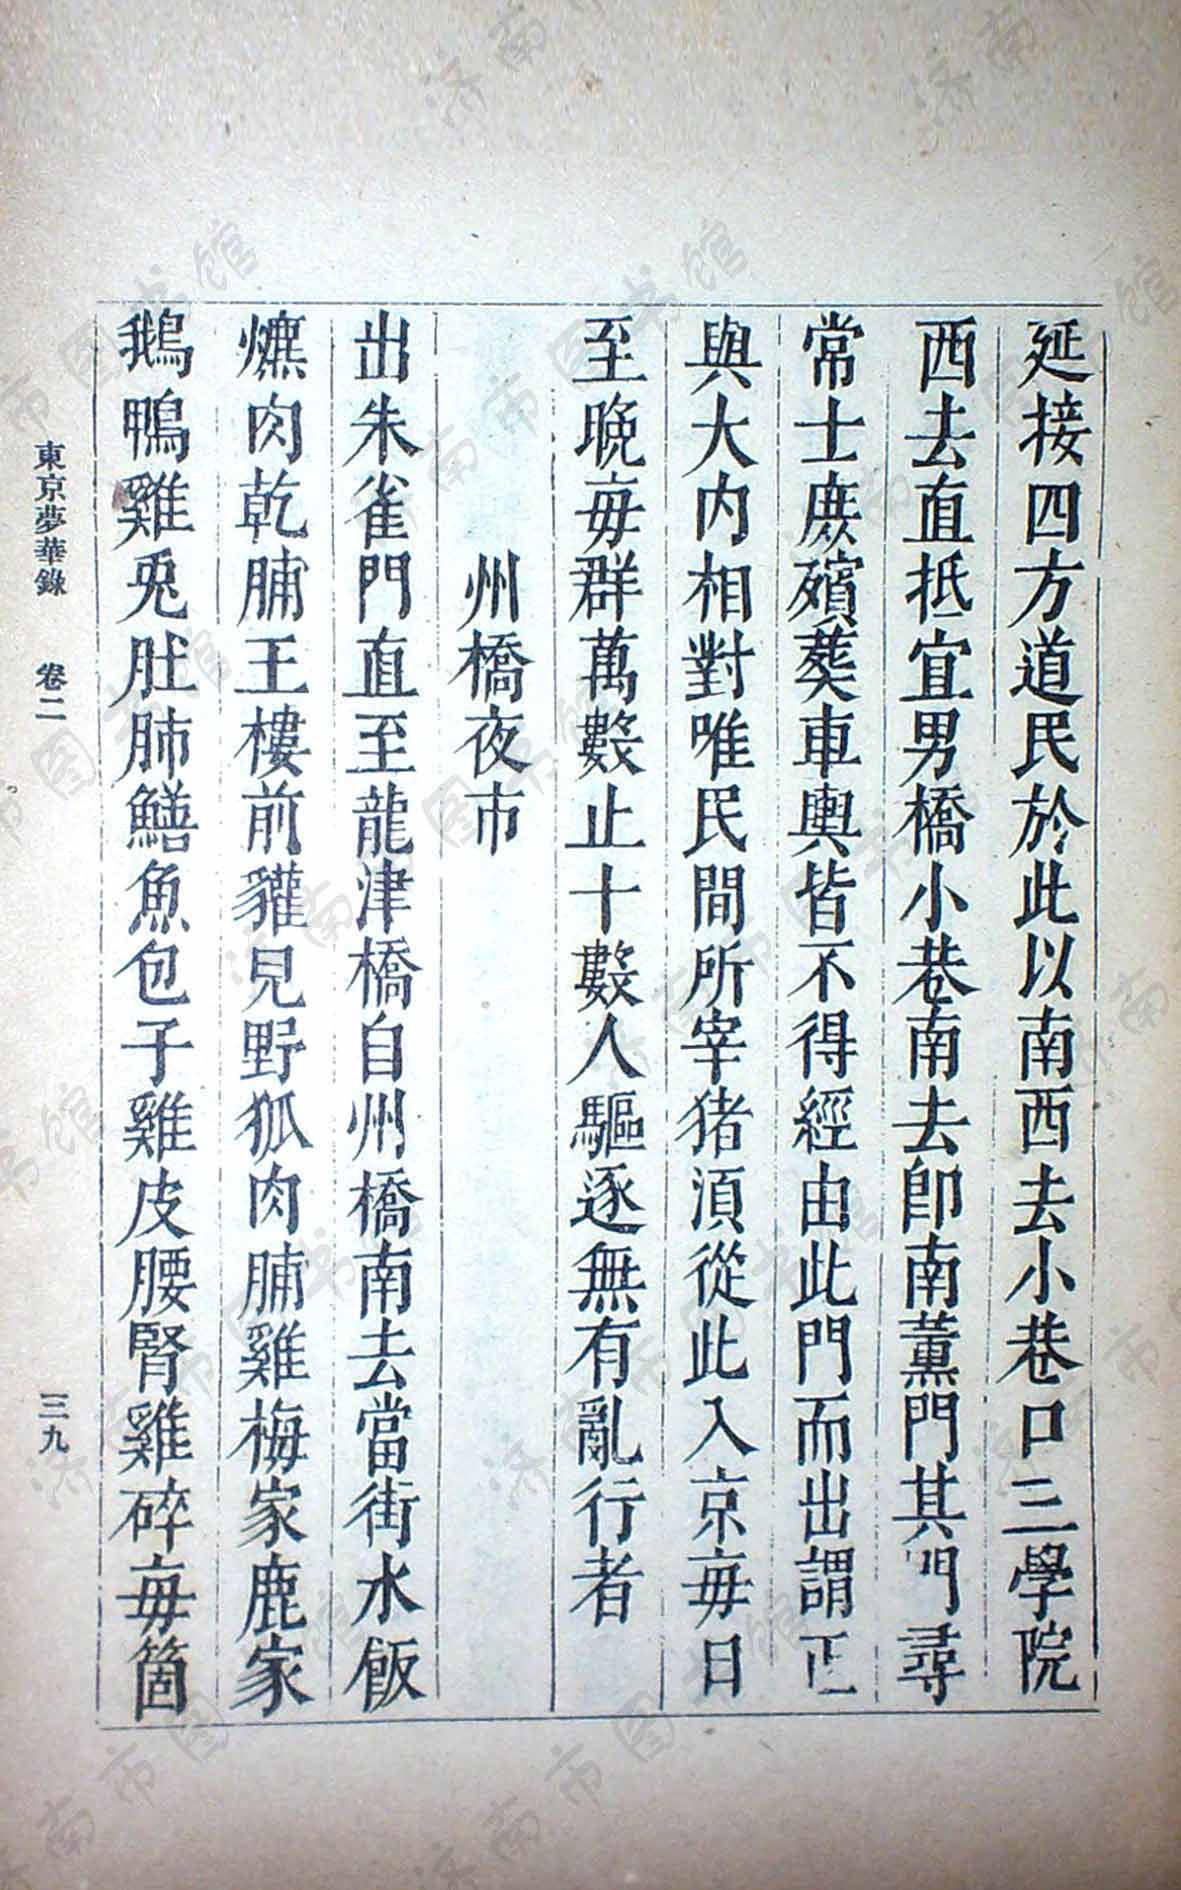 延接四方道民於此以南西去小巷口三學院
西去直抵宜男橋小巷南去卽南薰門其門尋
常士庶殯葬車輿皆不得經由此門而出謂正
與大內相對唯民間所宰猪須從此入京每日
至晚每群萬數止十數人驅逐無有亂行者
州橋夜市
出朱雀門直至龍津橋自州橋南去當街水飯
爊肉乾脯王樓前獾兒野狐肉脯雞梅家鹿家
鵝鴨雞兎肚肺鱔魚包子雞皮腰腎雞碎每箇
東京夢華錄 卷二 三九
济南市图书馆